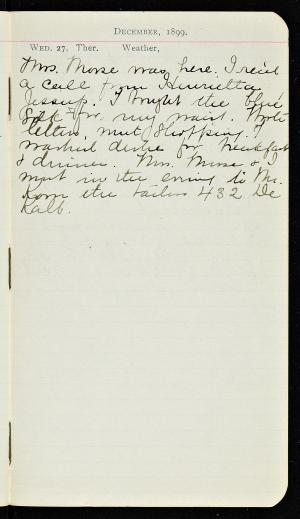 December, 1899.
Wed. 27. Ther. Weather,
Mrs. Morse was here. I rec'd
a call from Henrietta
Jessup. I bought the blue
silk for my waist. Wrote
letters, went shopping. I
washed dishes for breakfast
& dinner. Mrs. Morse & I
went in the evening to
from the 432 De
Kalb.